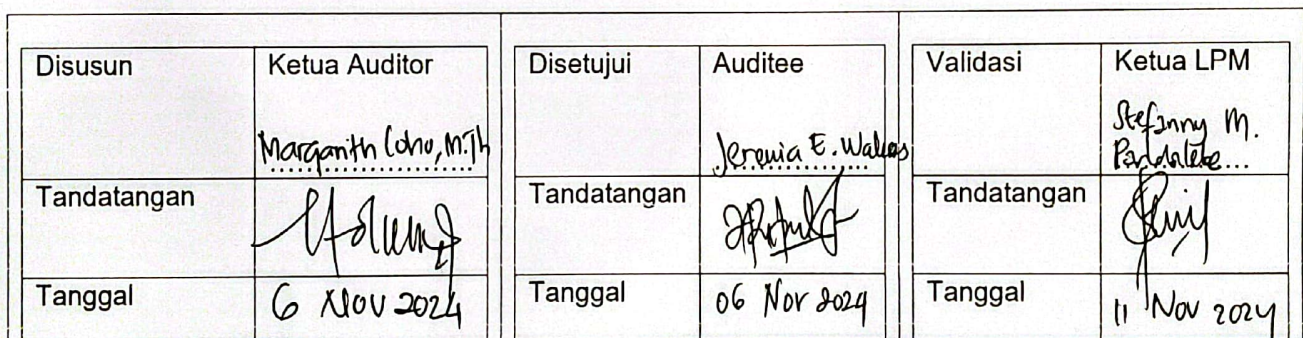 Disusun Ketua Auditor
Margarith Loho, M.Th
Tandatangan
Tanggal 6 Nov 2024
Disetujui Auditee
Jeremia E.
Tandatangan
Tanggal 06 Nov 2024
Validasi Ketua LPM
Stefanny M.
Tandatangan
Tanggal 11 Nov 2024